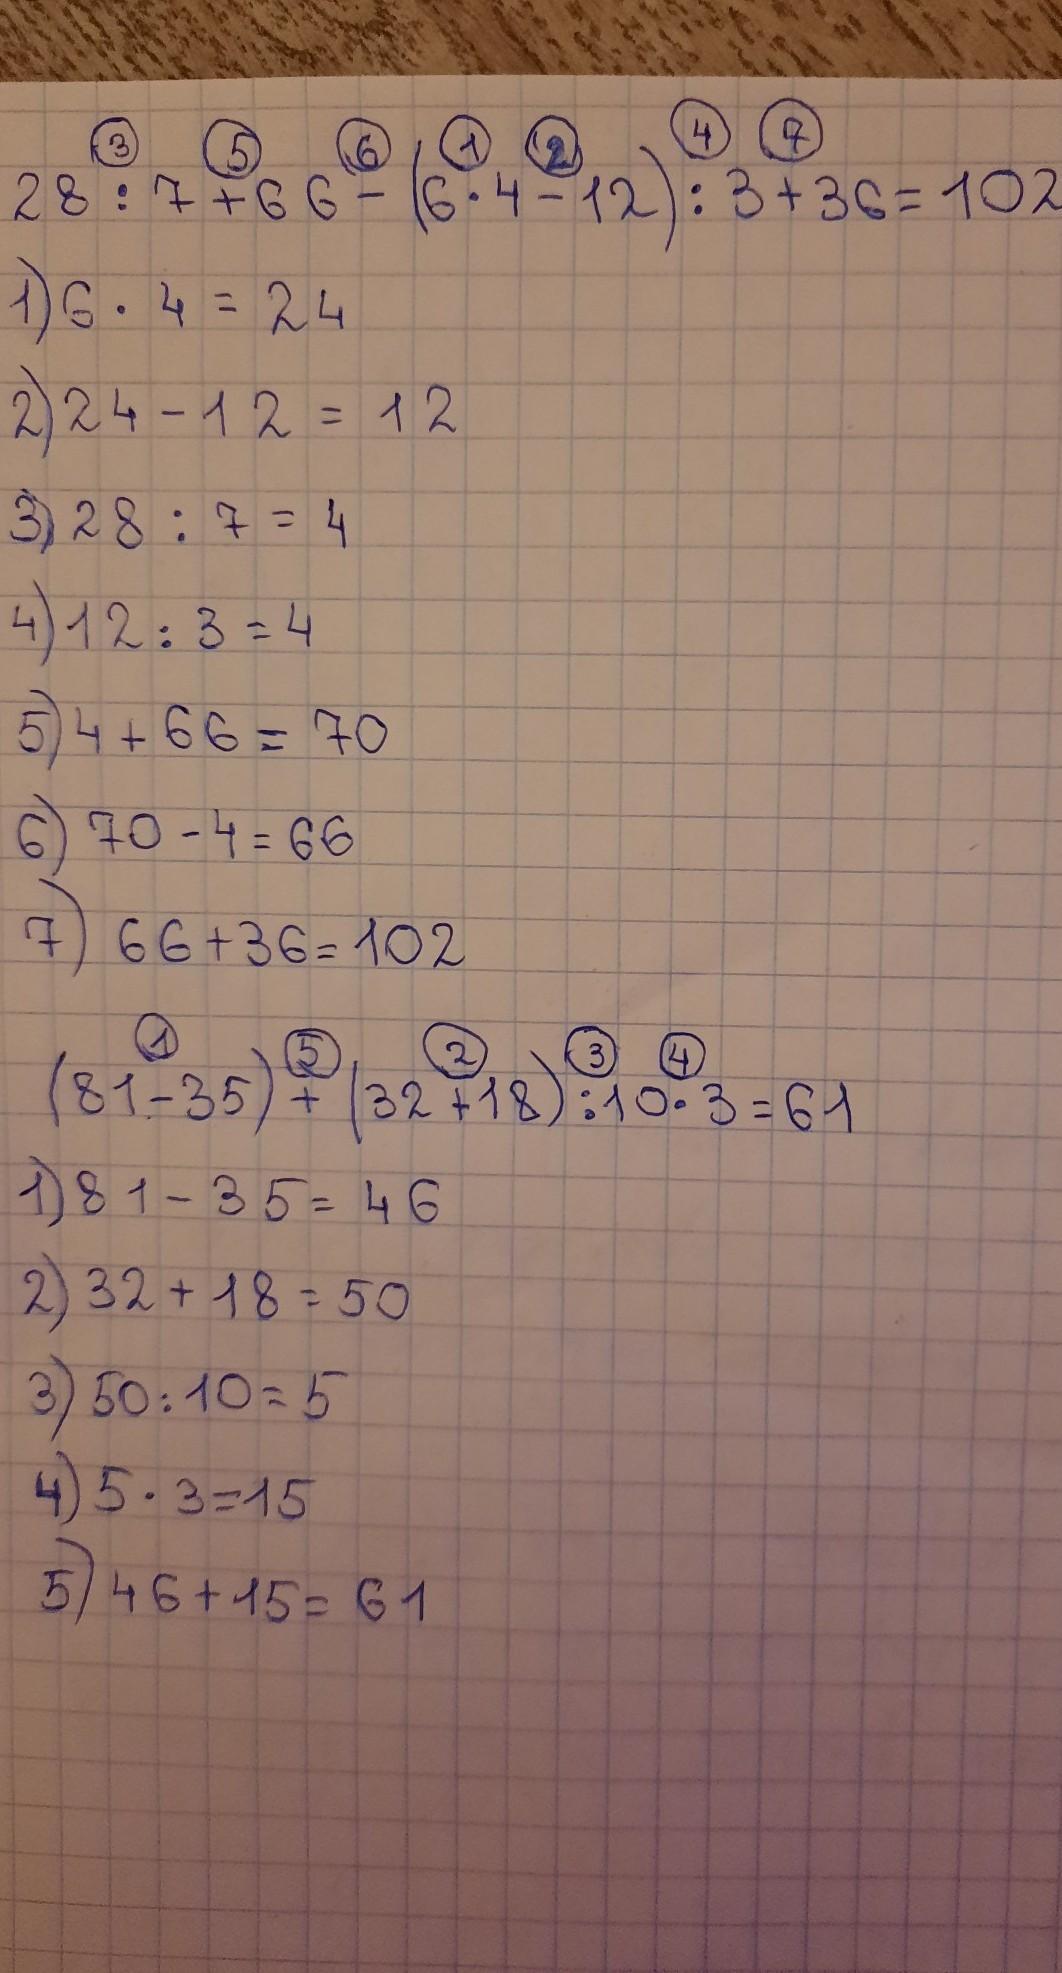 ③ ⑤ ⑥ ① ② ④ ⑦
28 : 7 + 66 - (6 · 4 - 12) : 3 + 36 = 102
1) 6 · 4 = 24
2) 24 - 12 = 12
3) 28 : 7 = 4
4) 12 : 3 = 4
5) 4 + 66 = 70
6) 70 - 4 = 66
7) 66 + 36 = 102
① ⑤ ② ③ ④
(81 - 35) + (32 + 18) : 10 · 3 = 61
1) 81 - 35 = 46
2) 32 + 18 = 50
3) 50 : 10 = 5
4) 5 · 3 = 15
5) 46 + 15 = 61